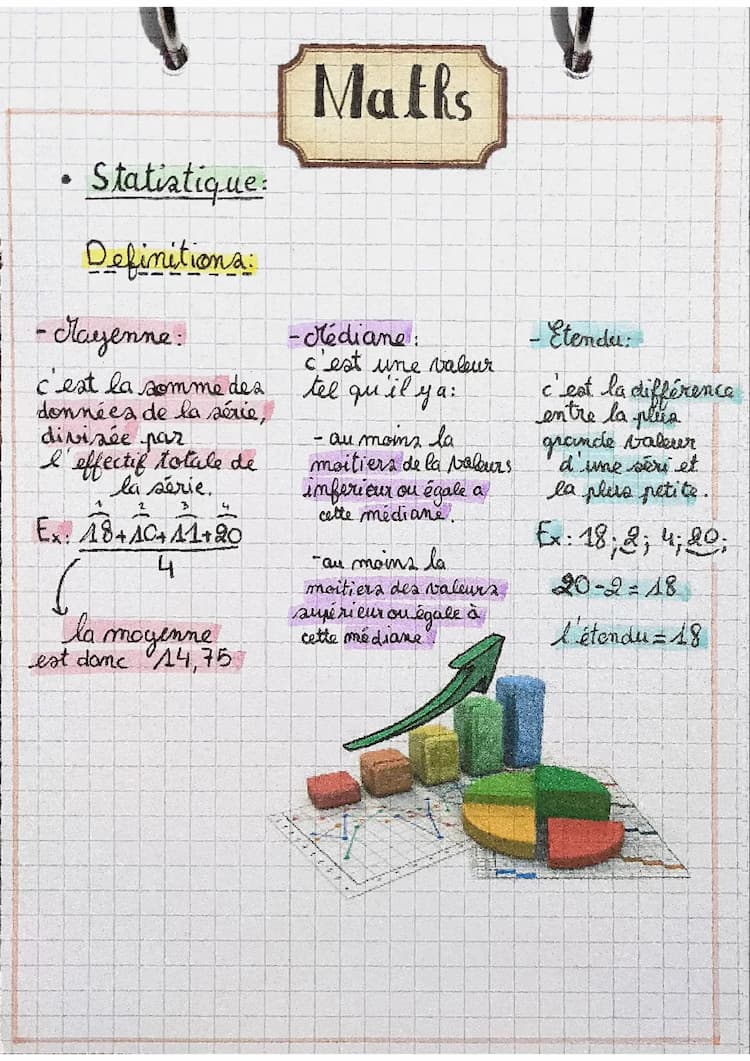 Maths
• Statistique:
Definitions:
- Moyenne:
c'est la somme des
données de la série,
divisée par
l'effectif totale de
la série.
1 2 3 4
Ex: 18+10+11+20
4
la moyenne
est donc 14,75
- Médiane:
c'est une valeur
tel qu'il y a:
- au moins la
moitiers de la valeurs
inferieur ou égale a
cette médiane.
- au moins la
moitiers des valeurs
supérieur ou égale à
cette médiane
- Etendu:
c'est la différence
entre la plus
grande valeur
d'une séri et
la plus petite.
Ex: 18; 2; 4; 20;
20-2=18
l'étendu=18